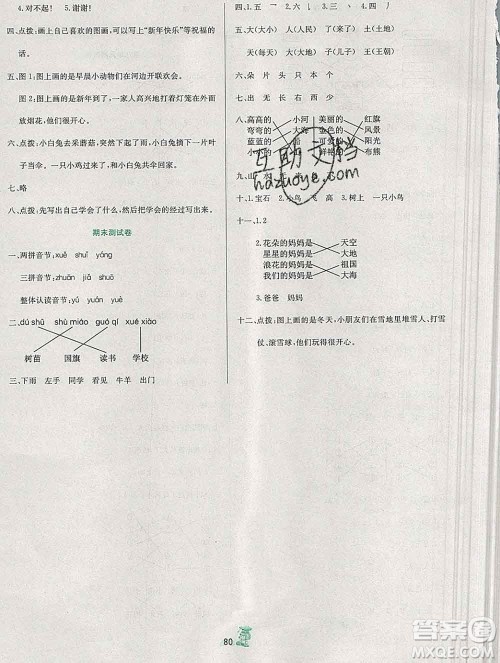 4.对不起! 5.谢谢!
四、点拨:画上自己喜欢的图画,可以写上“新年快乐”等祝福的
话。
五、图1:图上画的是早晨小动物们在河边开联欢会。
图2:图上画的是新年到了,一家人高兴地打着灯笼在户外
放烟花,他们很开心。
六、点拨:小白兔去采蘑菇,突然下起了雨,小白兔摘一片叶
子当伞。一只小鸡过来了,和小白兔共伞回家。
七、略
八、点拨:可以写自己学会了什么,并把学会后的感受写出来。
期末测试卷
一、两拼音节:xuě shuǐ yǒng
三拼音节:zhuān jiā
整体认读音节:yuè yīng
二、dú shū shù miáo guó qí xué xiào
树苗 国旗 读书 学校
三、下雨 左手 同学 看见 牛羊 出门
四、1.五 一 2.三 、 3.四 、 4.四 丿
五、大(大小) 人(人民) 了(来了) 土(土地)
天(每天) 大(大地) 子(儿子) 王(王朝)
六、朵 片 头 只 本 个
七、出 无 长 右 西 少
八、高高的 小河 美丽的 红旗
弯弯的 大海 金色的 风景
蓝蓝的 可爱的
小小的 鲜艳的 布熊
九、山 水
十、1.宝石 2.小鸟 飞 高 3.树上 一只小鸟
十一、1.2
2.花朵的妈妈是 天空
星星的妈妈是 大地
浪花的妈妈是 祖国
我们的妈妈是 大海
3.爸爸 妈妈
十二、点拨:图上画的是冬天,小朋友们在雪地里堆雪人、打雪
仗、滚雪球,他们玩得很开心。
互助文档
hazuoye.com
80
作业帮
MXQE.COM